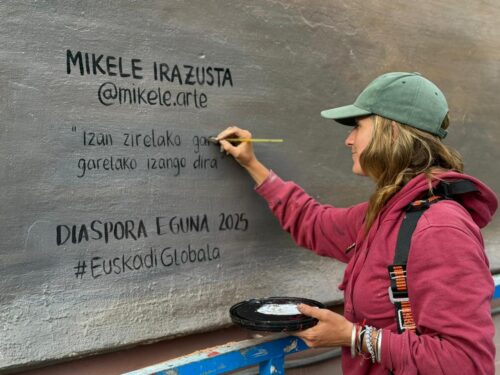 MIKELE IRAZUSTA
@mikele.arte
"Izan zirelako
garelako izango dira"
DIASPORA EGUNA 2025
#EuskadiGlobala